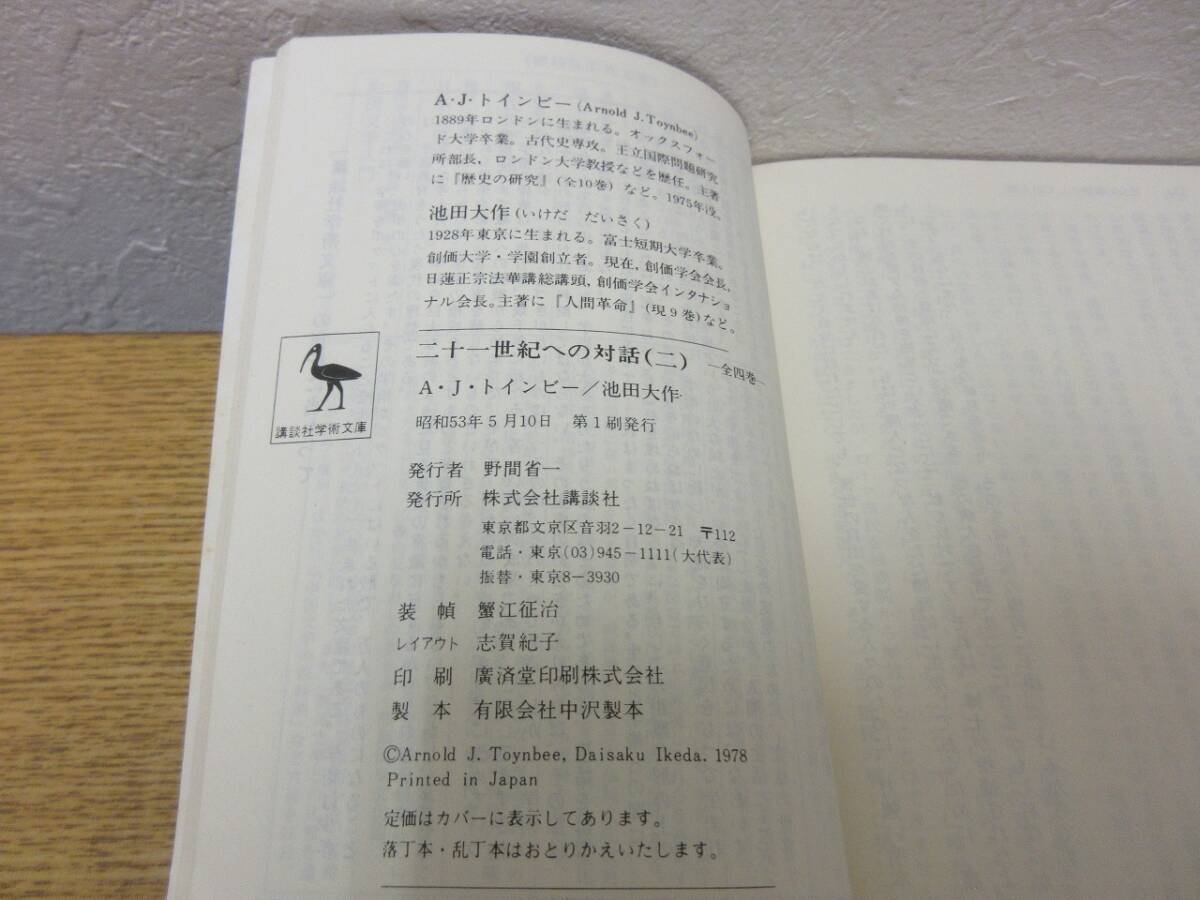 A・J・トインビー(Arnold J. Toynbee)
1889年ロンドンに生まれる。オックスフォー
ド大学卒業。古代史専攻。王立国際問題研究
所部長，ロンドン大学教授などを歴任。主著
に『歴史の研究』(全10巻) など。1975年没。
池田大作(いけだ だいさく)
1928年東京に生まれる。富士短期大学卒業。
創価大学・学園創立者。現在，創価学会会長，
日蓮正宗法華講総講頭，創価学会インタナショ
ナル会長。主著に『人間革命』(現9巻)など。
講談社学術文庫
二十一世紀への対話(二) —全四巻—
A・J・トインビー／池田大作
昭和53年5月10日 第1刷発行
発行者 野間省一
発行所 株式会社講談社
東京都文京区音羽2−12−21 〒112
電話・東京(03)945−1111(大代表)
振替・東京8−3930
装 幀 蟹江征治
レイアウト 志賀紀子
印 刷 廣済堂印刷株式会社
製 本 有限会社中沢製本
©Arnold J. Toynbee, Daisaku Ikeda. 1978
Printed in Japan
定価はカバーに表示してあります。
落丁本・乱丁本はおとりかえいたします。